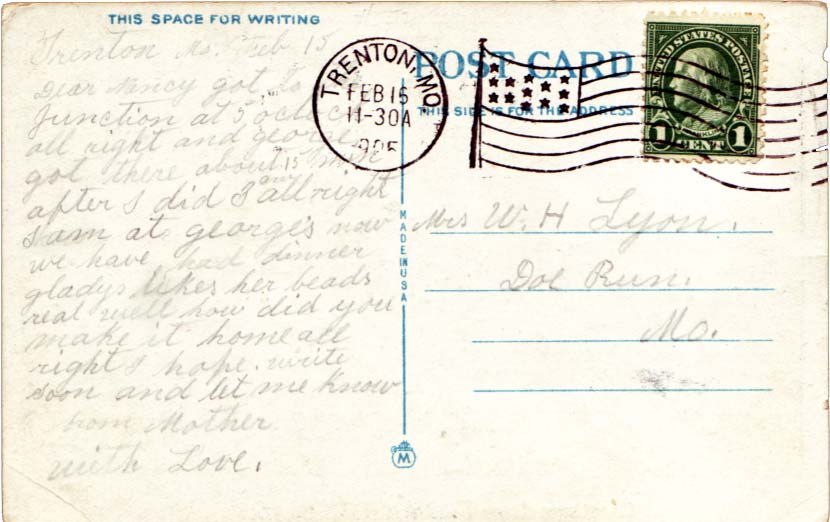 THIS SPACE FOR WRITING
Trenton Mo. Feb 15
Dear Nancy got to
Junction at 5 oclock
all right and george
got there about 15
after I did I all right
I am at george's now
we have had dinner
gladys likes her beads
real well how did you
make it home all
right I hope. write
soon and let me know
from Mother
with Love.
POST CARD
THIS SIDE IS FOR THE ADDRESS
TRENTON, MO.
FEB 15
11-30A
UNITED STATES POSTAGE
FRANKLIN
1 CENT 1
MADE IN USA
Mrs W. H Lyon.
Doe Run.
Mo.
M